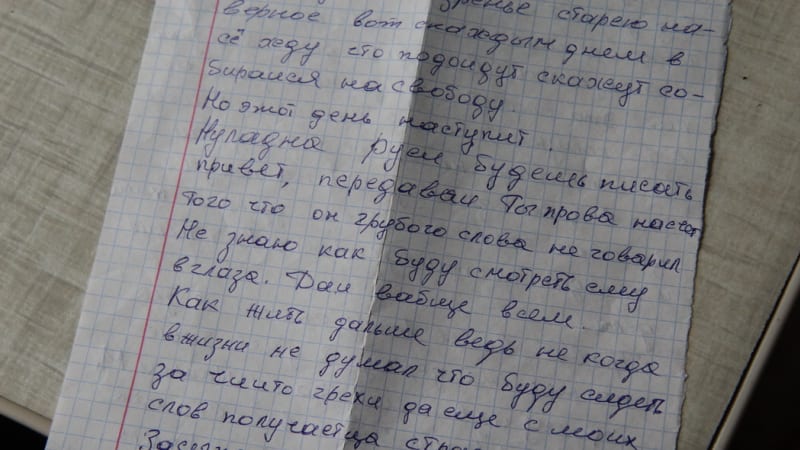 зренье старею на-
верное вот с каждым днем в
сё жду что подойдут скажут со-
бирайся на свободу
Но этот день наступит.
Ну ладна Русй будешь писать
привет, передавай Ты права насчет
того что он грубого слова не говарил
Не знаю как буду смотреть ему
в глаза. Даи вабще всем.
Как жить дальше ведь не когда
в жизни не думал что буду сидеть
за чиито грехи да еще с моих
слов получаетца